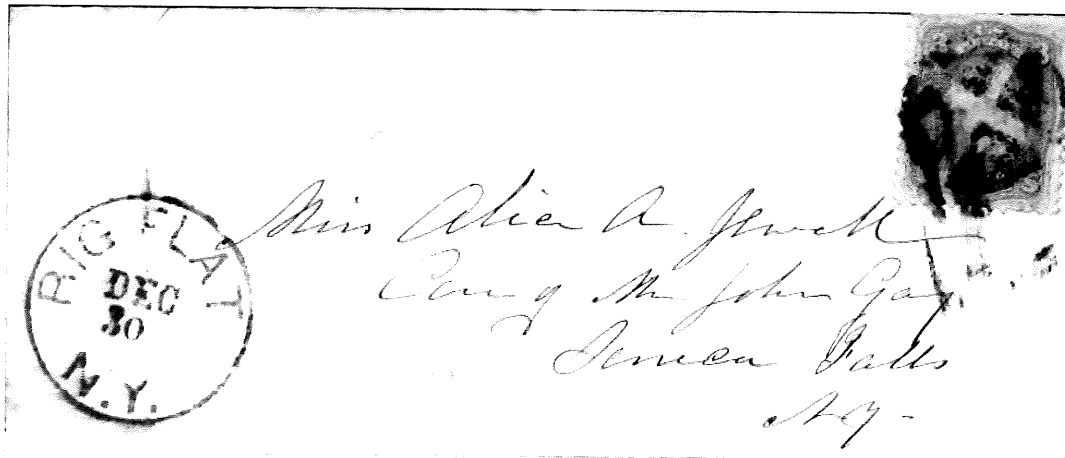 RIG FLAT
DEC
30
N.Y.
Miss Alice A. Jewell
Care of Mr John Gay
Seneca Falls
N.Y-